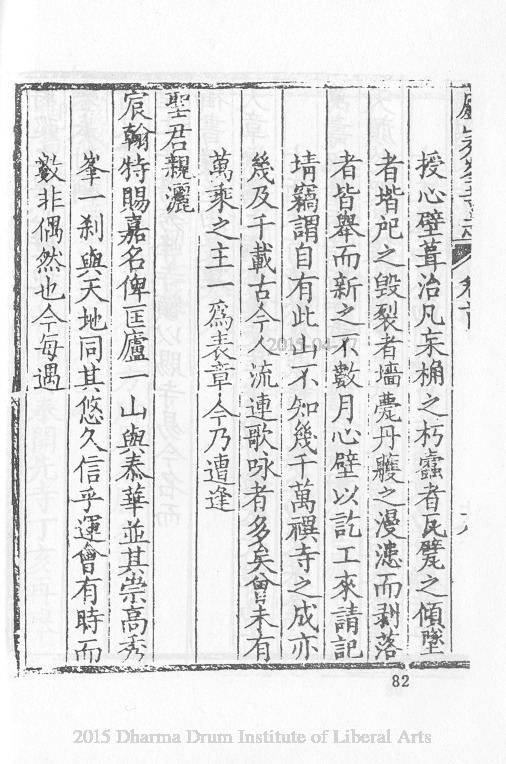 授心壁葺治凡宋桷之朽蠹者瓦甓之傾墜
者堦戺之毀裂者墻甍丹雘之漫漶而剥落
者皆舉而新之不數月心壁以訖工來請記
埥竊謂自有此山不知幾千萬禩寺之成亦
幾及千載古今人流連歌咏者多矣曾未有
萬乘之主一爲表章今乃遭逢
聖君親灑
宸翰特賜嘉名俾匡廬一山與泰華並其崇高秀
峯一刹與天地同其悠久信乎運會有時而
數非偶然也今每遇
82
2015.04.27
2015 Dharma Drum Institute of Liberal Arts